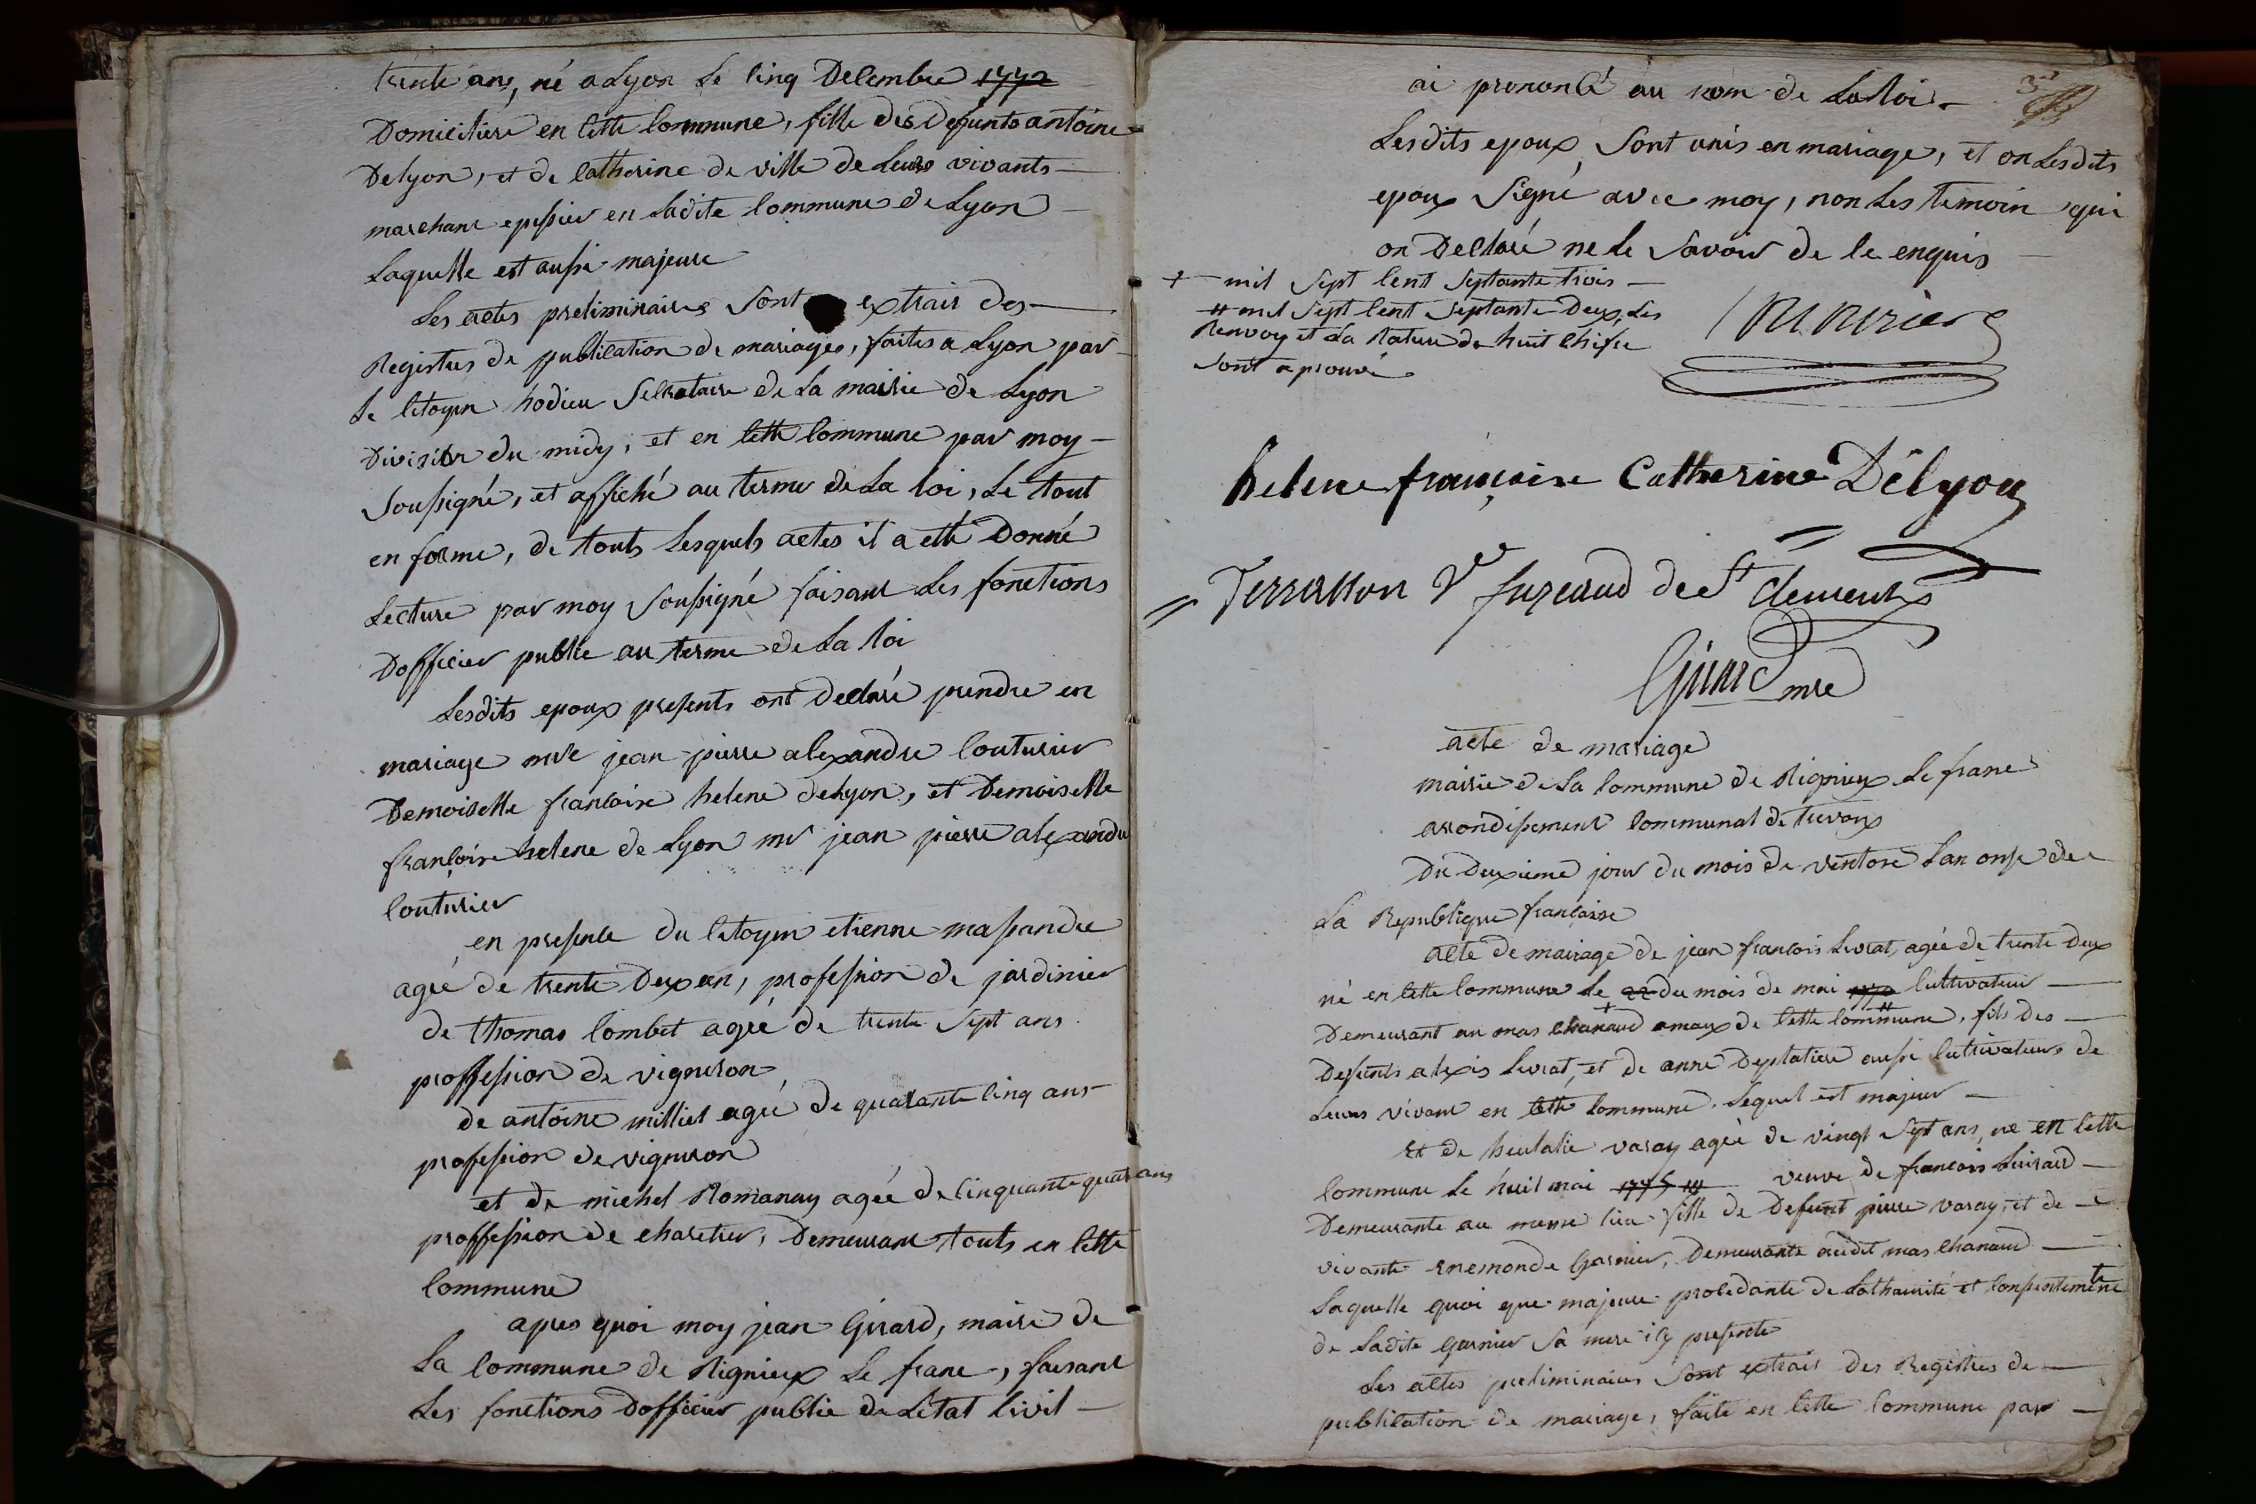 trente ans, né a Lyon le cinq Decembre 1772
Domiciliere en cette commune, fille des Defunts antoine
Delyon, et de catherine de ville de leurs vivants
marchant epissier en Ladite commune de Lyon
Laquelle est aussi majeure
Les actes preliminaires sont extrais des
Registres de publication de mariages, faites a Lyon par
le citoyen hodieu secretaire de la mairie de Lyon
Division du midy, et en cette commune par moy
soussigné, et affiché au terme de La loi, Le tout
en forme, de touts Lesquels actes il a etté Donné
Lecture par moy soussigné faisant Les fonctions
Dofficier public au terme de La loi
Lesdits epoux presents ont declaré prendre en
mariage mr jean pierre alexandre couturier
Demoiselle francoise helene delyon, et Demoiselle
françoise helene de Lyon mr jean pierre alexandre
couturier
en presence du citoyen etienne massandre
ageé de trente Deux an, profession de jardinier
de thomas combet ageé de trente sept ans
proffession de vigneron
de antoine milliet ageé de quarante cinq ans
profession de vigneron
et de michel Romanay ageé de cinquante quatr ans
proffession de charetier, Demeurant touts en cette
commune
apres quoi moy jean Girard, maire de
La commune de Rignieux le franc, faisant
Les fonctions Dofficier public de Letat civil
3
ai prononcé au nom de La loi
Lesdits epoux sont unis en mariage, et on Lesdits
epoux signé avec moy, non Les temoin qui
on Declaré ne le savoir de ce enquis
+ mil sept cent septante trois
# mil sept cent septante Deux, Les
Renvoy et La Rature de huit chifre
sont aprouvé
helene françoise Catherine Délyon
Terrasson Ve de St clement
Girard mre
acte de mariage
mairie de La commune de Rignieux Le franc
arrondissement communal de trevoux
Du Deuxieme jour du mois de ventose Lan onse de
La Republique francaise
acte de mairage de jean francois Livrat, ageé de trente Deux
né en cette commune Le 22 du mois de mai 1770 cultivateur
Demeurant au mas chanaud amaux de cette commune, fils des
Defunts alexis Livrat, et de anne Deplatiere aussi cultivateurs de
Leurs vivant en cette commune. Lequel est majeur
Et de heulalie varay ageé de vingt sept ans, ne en cette
commune le huit mai 1775 veuve de francois Luirard
Demeurante au meme lieu fille de Defunt pierre varay, et de
vivante enemonde Garnier, Demeurante audit mas chanaud
Laquelle quoi que majeure procedante de Lothaurité et consentement
de Ladite Garnier sa mere icy presente
Les actes preliminaires sont extrais des Registres de
publication de mariage, faite en cette commune par